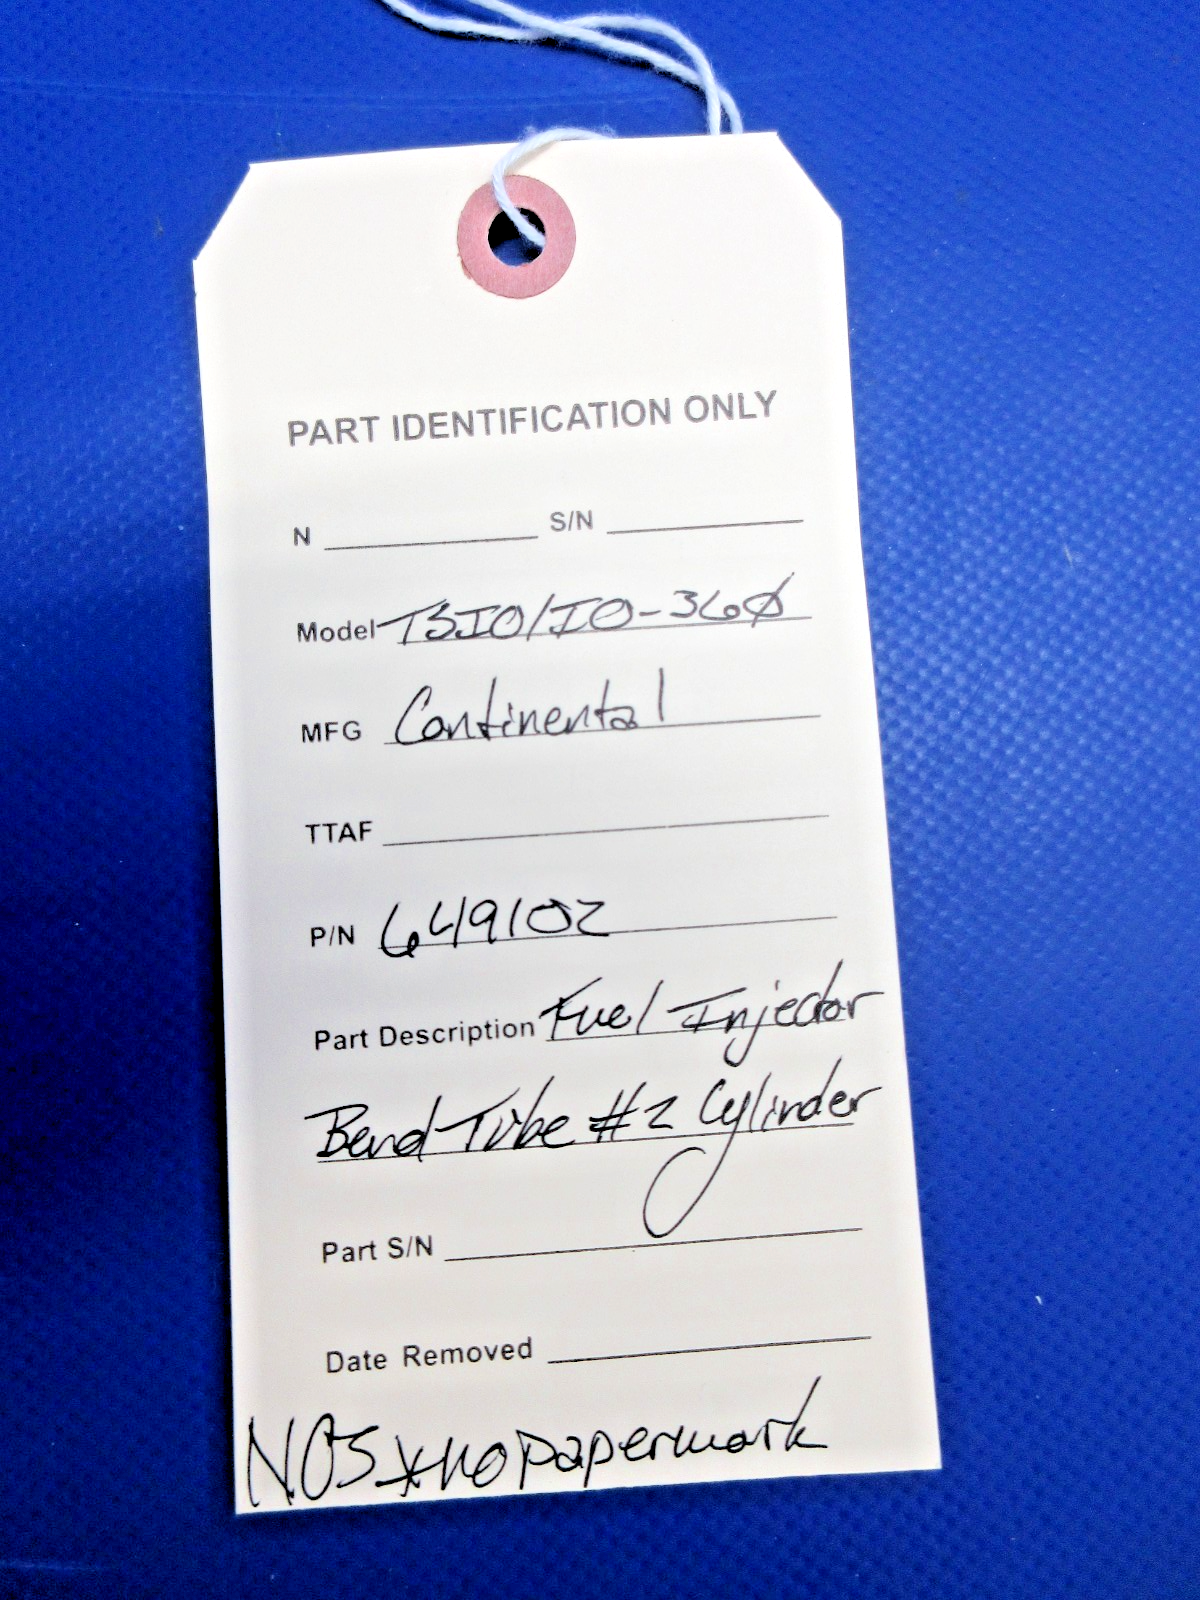 PART IDENTIFICATION ONLY
N S/N
Model TSIO/IO-36Ø
MFG Continental
TTAF
P/N 649102
Part Description Fuel Injector
Bend Tube #2 Cylinder
Part S/N
Date Removed
NOS *no paperwork